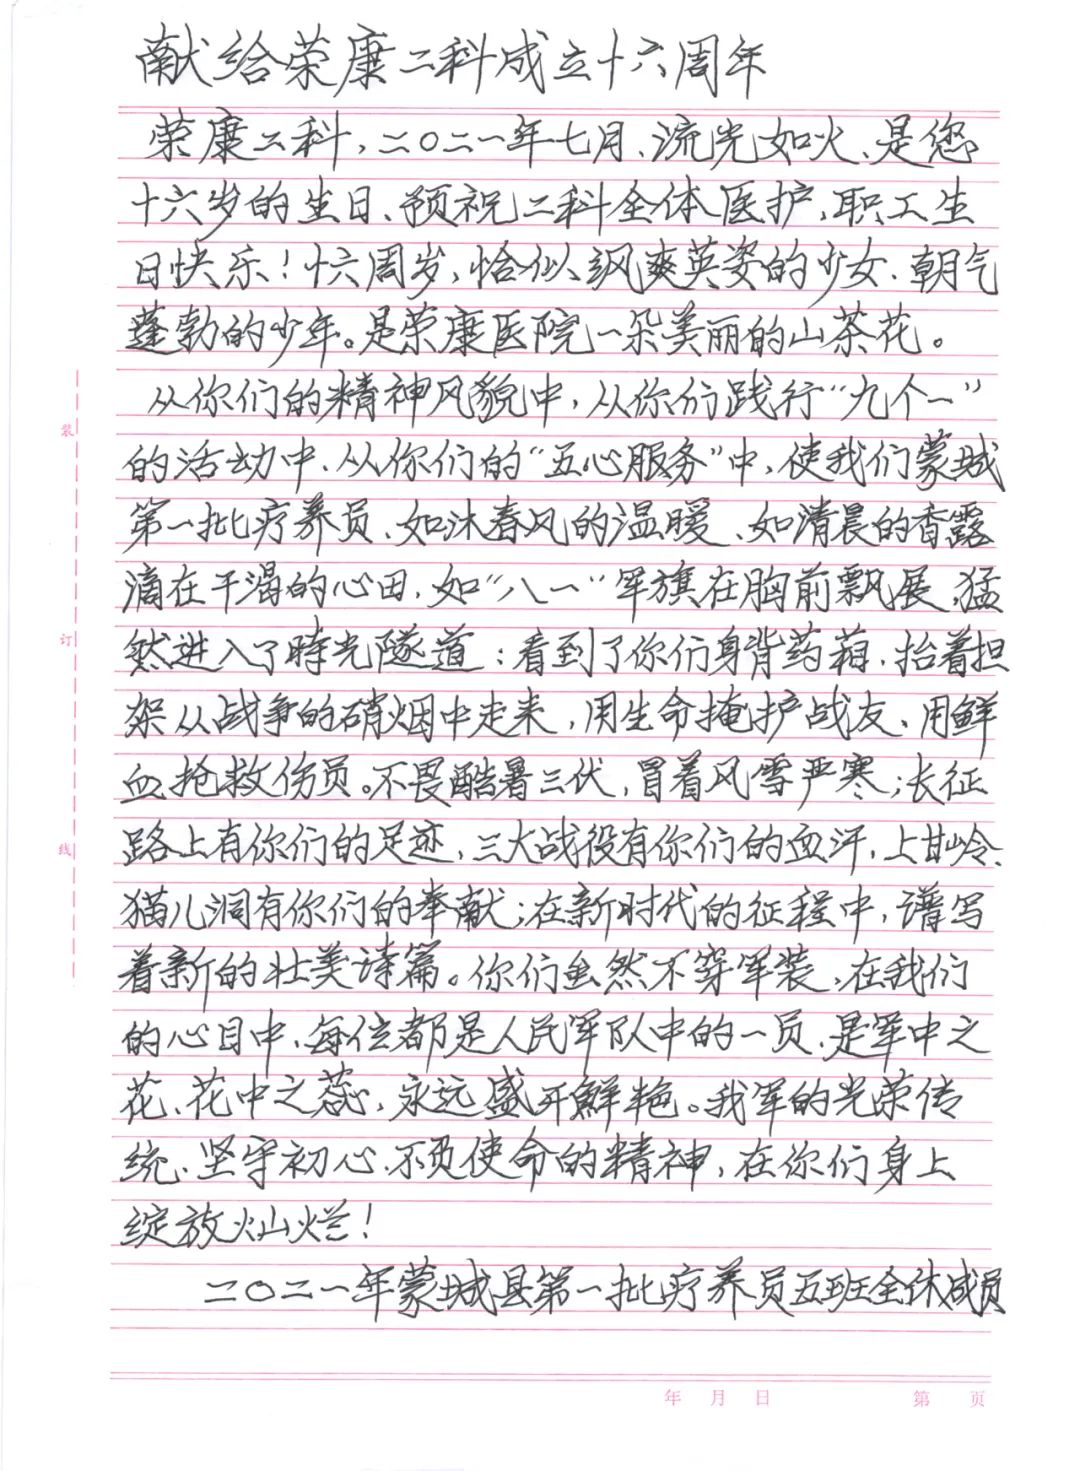 献给荣康二科成立十六周年
荣康二科，二〇二一年七月、流光如火、是您
十六岁的生日、预祝二科全体医护，职工生
日快乐！十六周岁，恰似飒爽英姿的少女、朝气
蓬勃的少年。是荣康医院一朵美丽的山茶花。
从你们的精神风貌中，从你们践行“九个一”
的活动中、从你们的“五心服务”中，使我们蒙城
第一批疗养员、如沐春风的温暖、如清晨的香露
滴在干渴的心田，如“八一”军旗在胸前飘展，猛
然进入了時光隧道：看到了你们身背药箱、抬着担
架从战争的硝烟中走来，用生命掩护战友、用鲜
血抢救伤员。不畏酷暑三伏，冒着风雪严寒；长征
路上有你们的足迹，三大战役有你们的血汗，上甘岭、
猫儿洞有你们的奉献；在新时代的征程中，谱写
着新的壮美诗篇。你们虽然不穿军装，在我们
的心目中、每位都是人民军队中的一员、是军中之
花、花中之蕊，永远盛开鲜艳。我军的光荣传
统、坚守初心、不负使命的精神，在你们身上
绽放灿烂！
二〇二一年蒙城县第一批疗养员五班全体成员
装
订
线
年 月 日 第 页